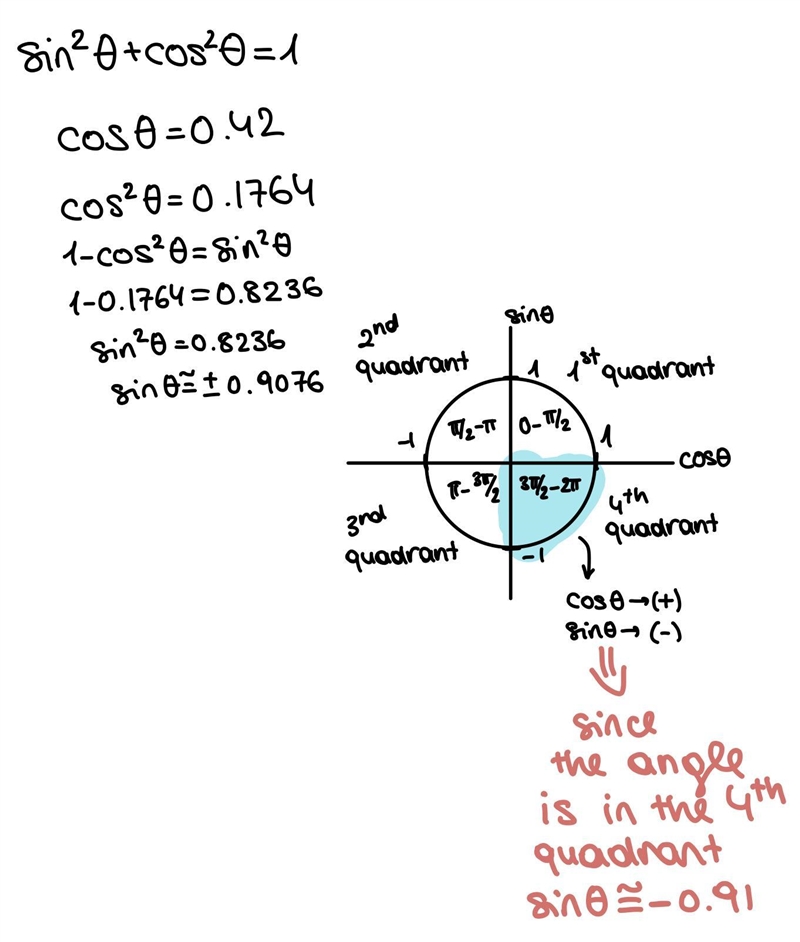 sin²θ+cos²θ=1
cosθ=0.42
cos²θ=0.1764
1-cos²θ=sin²θ
1-0.1764=0.8236
sin²θ=0.8236
sinθ≅±0.9076
sinθ
2nd
quadrant
1
1st quadrant
π/2-π
0-π/2
-1
1
cosθ
π-3π/2
3π/2-2π
3rd
quadrant
4th
quadrant
-1
cosθ→(+)
sinθ→(-)
since
the angle
is in the 4th
quadrant
sinθ≅-0.91